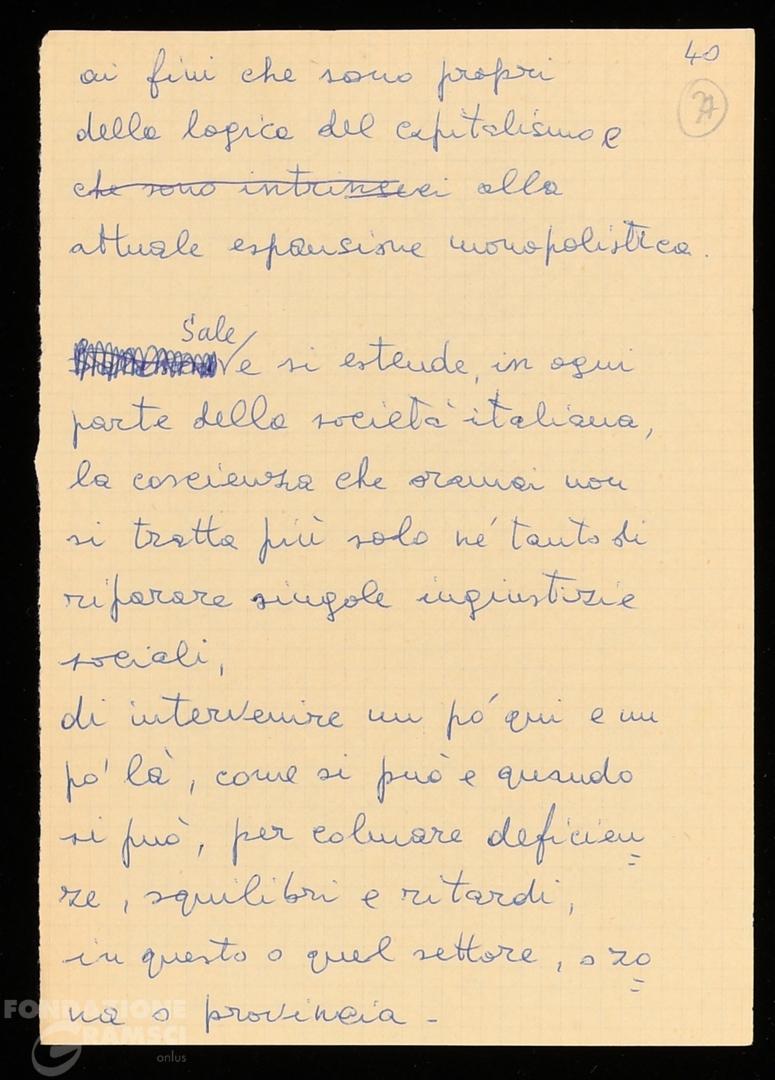 40
37
ai fini che sono propri
della logica del capitalismo e
che sono intrinseci alla
attuale espansione monopolistica.
Sale
e si estende, in ogni
parte della società italiana,
la coscienza che oramai non
si tratta più solo né tanto di
riparare singole ingiustizie
sociali,
di intervenire un pó qui e un
po' là, come si può e quando
si può, per colmare deficien
ze, squilibri e ritardi,
in questo o quel settore, o zo
na o provincia -
FONDAZIONE
GRAMSCI
onlus